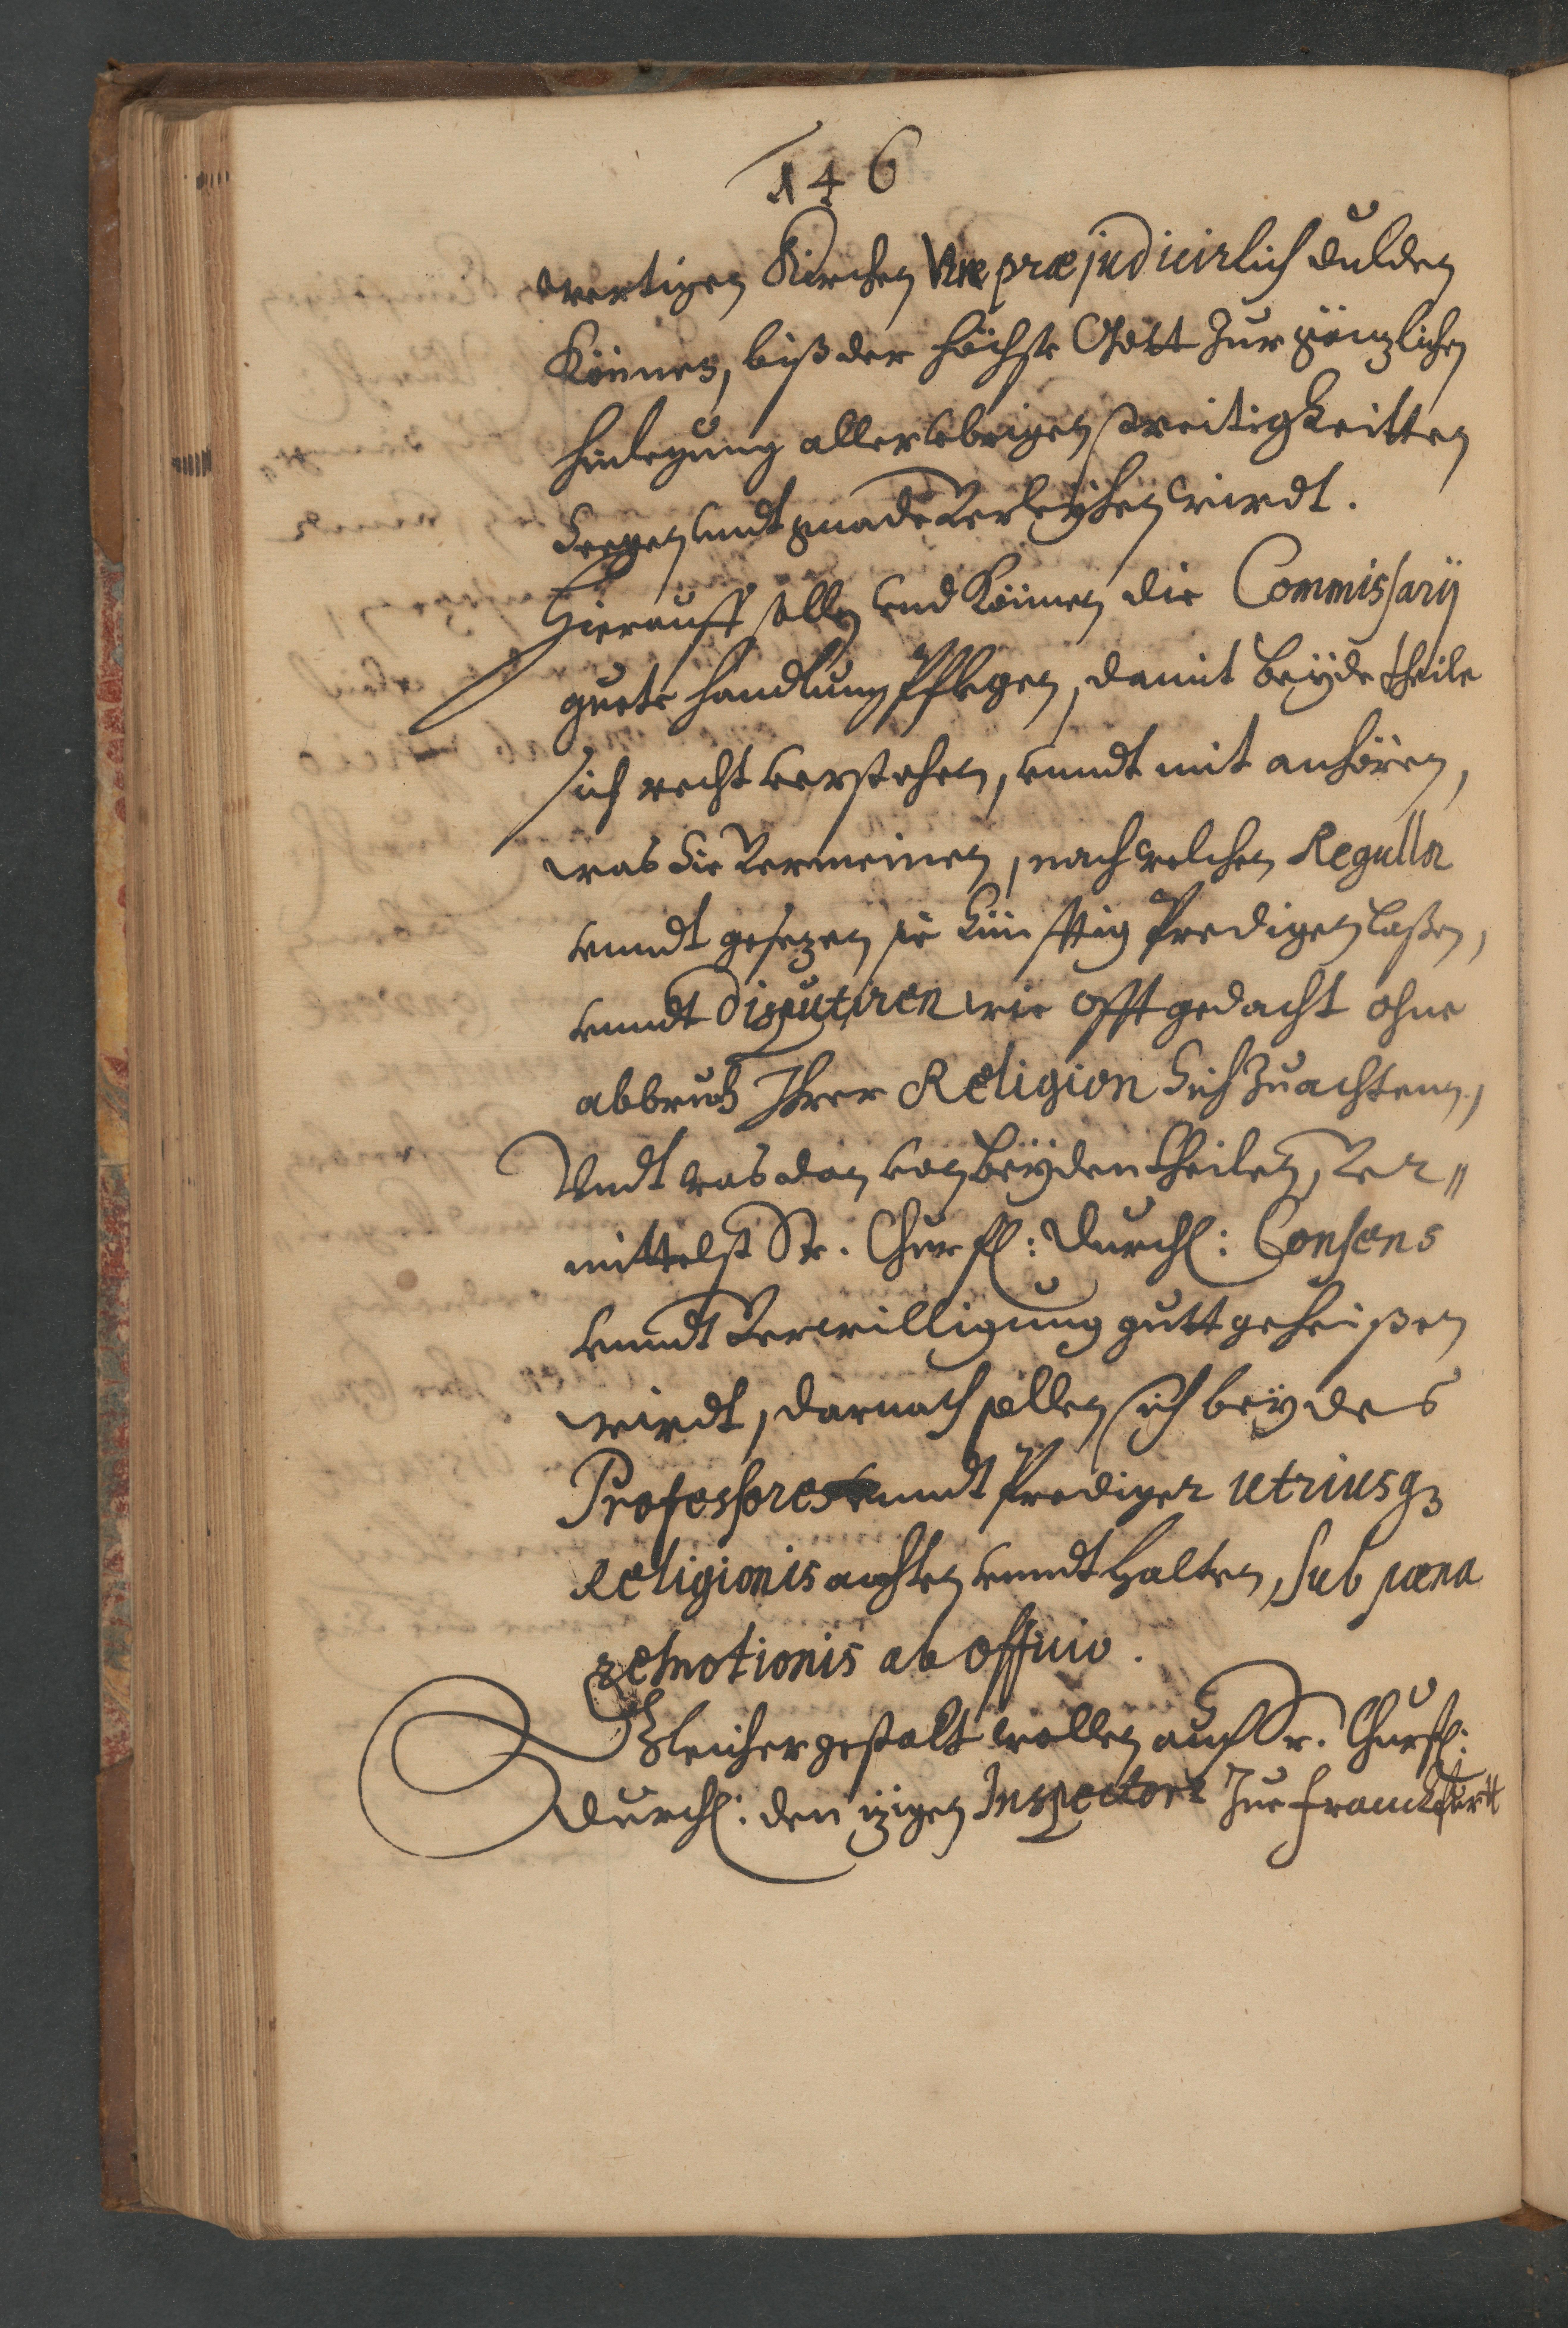 146
wertigen Kirchen Vnpræjudicirlich dulden
Können, biß der höchste Gott Zur gänzlichen
hinlegung aller vbrigen streitigkeitten
Seegen undt gnade Verleyhen wirdt.
Hierauff sollen vnd Können die Commissarij
guete handlung Pflegen, damit beÿde theile
sich recht verstehen, vnndt mit anhören,
was Sie Vermeinen, nach welchen Regulln
vnndt gesezen sie Künfftig Predigen laßen,
vnndt Disputiren wie offt gedacht ohne
abbruch Ihrer Religion Sich Zu achten,
Vndt was dan von beÿden theilen, Ver〃
mittelst Sr. Churfl: Durchl: Consens
vnndt Verwilligung gutt geheißen
wirdt, darnach sollen sich beydes
Professores vnndt Prediger utriusq3
Religionis achten vnndt halten, sub pœna
remotionis ab officio.
Gleichergestalt wollen auch Sr. Churfl:
Durchl: den izigen Inspectorn Zue Franckfurtt